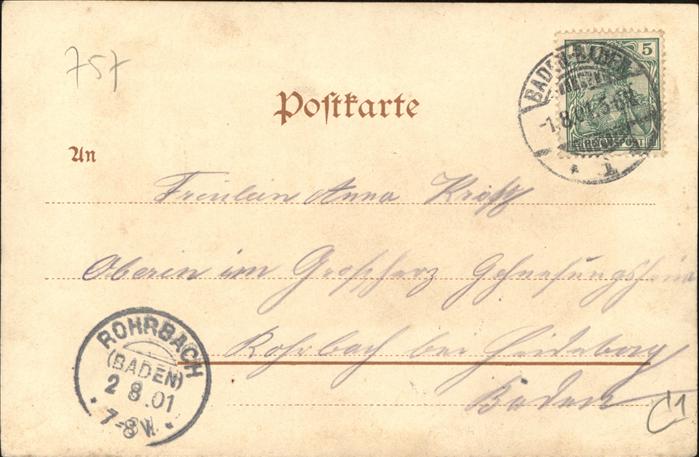 757
5
BADEN-BADEN
-1.8.01.5-6N.
* 1.
REICHSPOST
Postkarte
An
Freulein Anna
Oberin im Grossherz Genesungsheim
Rohrbach bei Heidelberg
Baden
ROHRBACH
(BADEN)
2 8.01
7-8V.